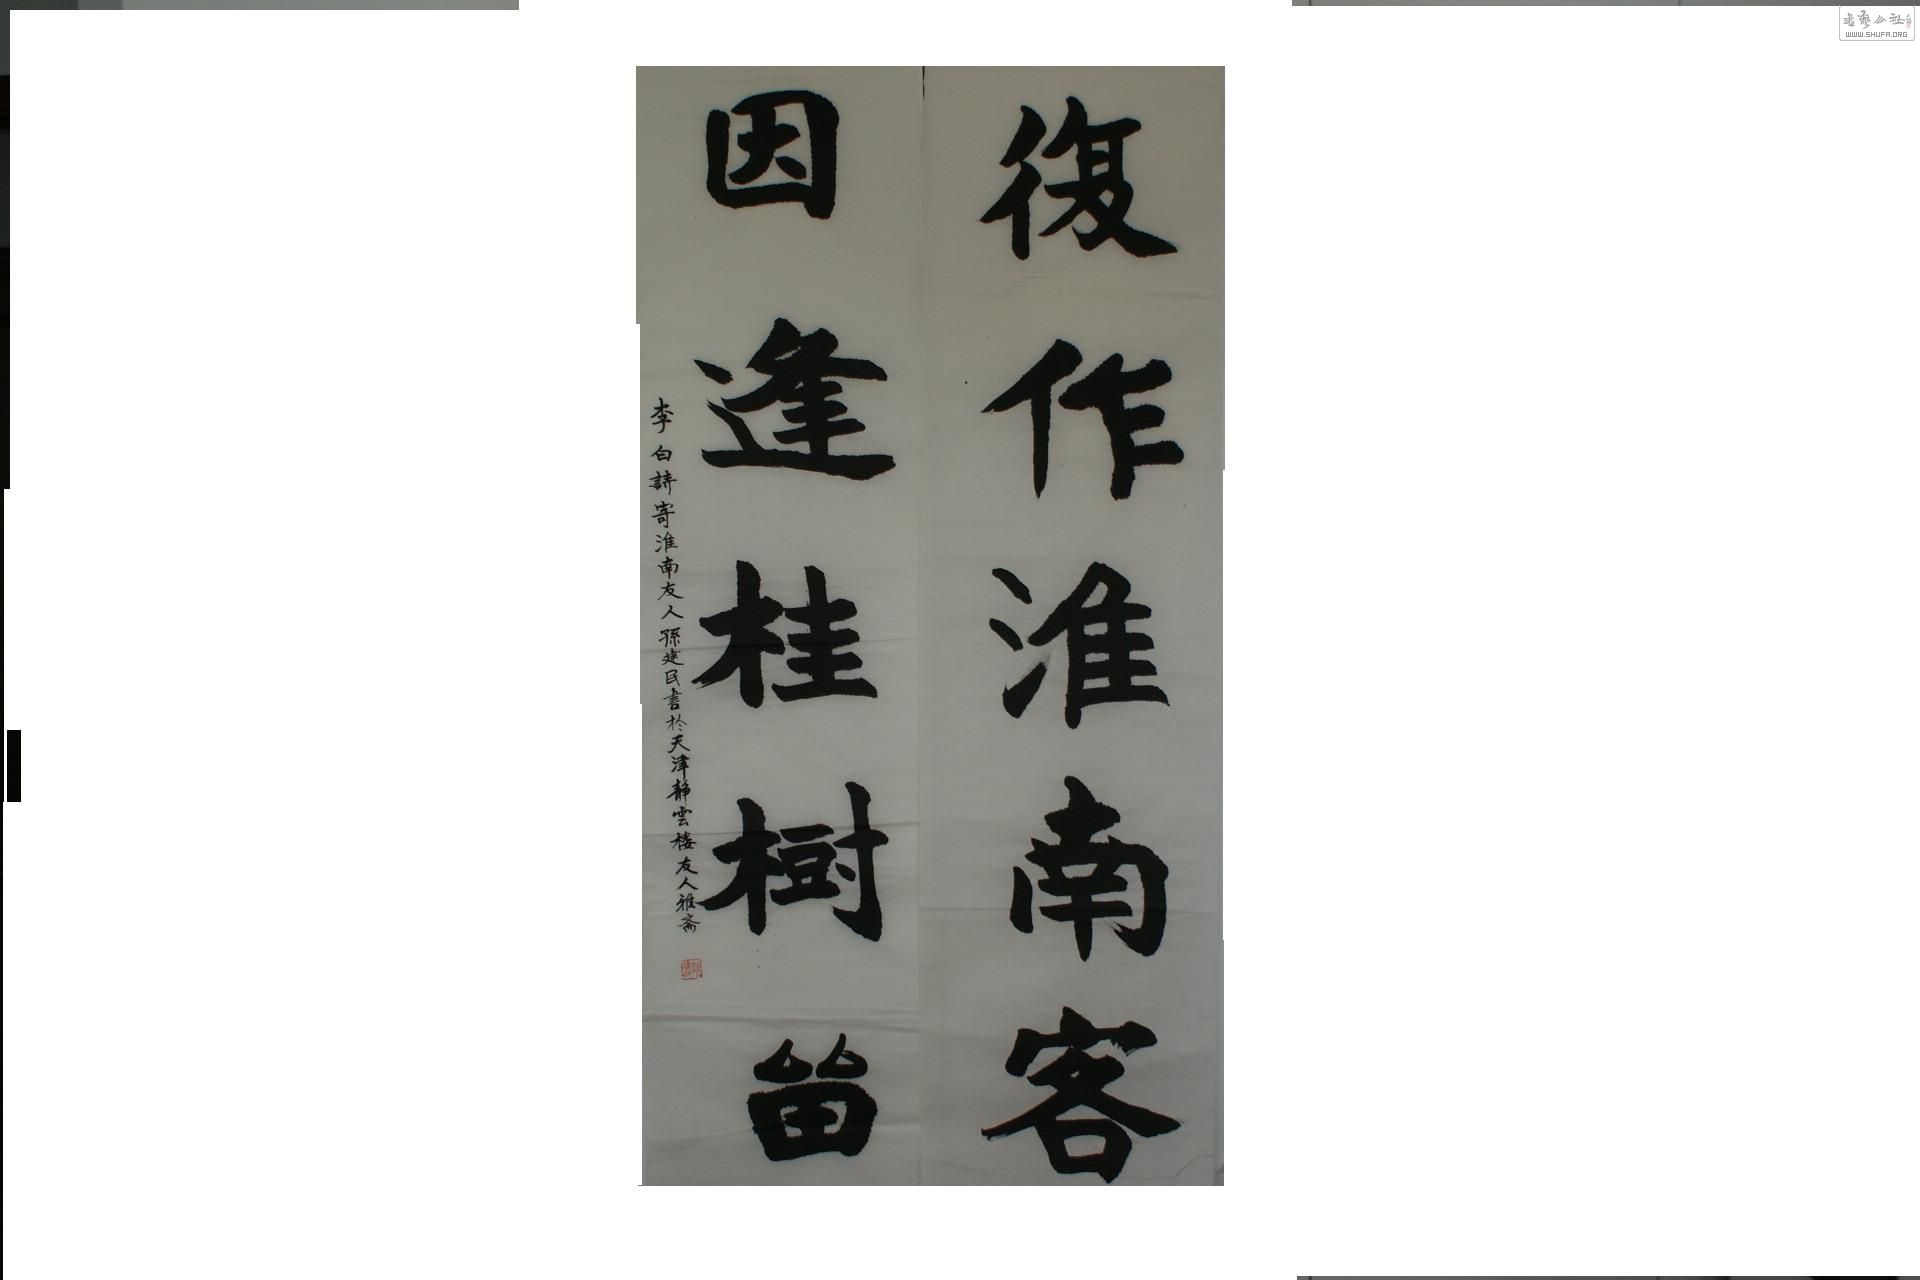 復作淮南客
因逢桂樹畄
李白詩寄淮南友人孫建民書於天津靜雲楼友人雅斎
书艺公社
WWW.SHUFA.ORG